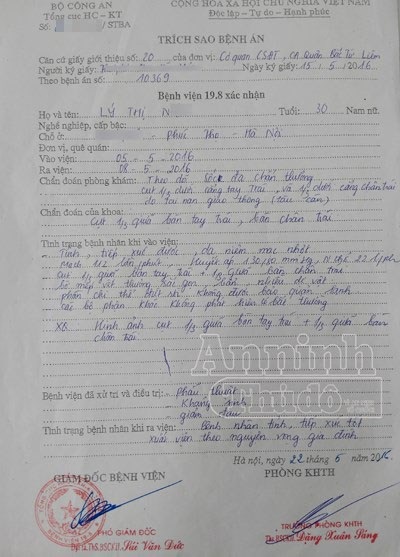 BỘ CÔNG AN
CỘNG HÒA XÃ HỘI CHỦ NGHĨA VIỆT NAM
Tổng cục HC - KT
Độc lập - Tự do - Hạnh phúc
Số: /STBA
TRÍCH SAO BỆNH ÁN
Căn cứ giấy giới thiệu số: 20 của: Cơ quan CSĐT, CA Quận Bắc Từ Liêm
Người ký giấy: Ngày ký giấy: 15/5/2016
Theo bệnh án số: 10369
Bệnh viện 19.8 xác nhận
Họ và tên: LÝ THỊ N Tuổi: 30 Nam nữ.
Nghề nghiệp, cấp bậc:
Chỗ ở: - Phúc Thọ - Hà Nội
Đơn vị, quê quán:
Vào viện: 05 - 5 - 2016
Ra viện: 08 - 5 - 2016
Chẩn đoán phòng khám: Theo dõi sốc đa chấn thương
cụt 1/3 dưới cẳng tay trái, và 1/3 dưới cẳng chân trái
do tai nạn giao thông (tàu cán)
Chẩn đoán của khoa:
Cụt 1/3 quá bàn tay trái, bàn chân trái
Tình trạng bệnh nhân khi vào viện:
- Tỉnh, tiếp xúc được, da niêm mạc nhợt
Mạch 112 lần/phút Huyết áp 130/80 mmHg, N thở 22 l/phút
cụt 1/3 quá bàn tay trái + 1/3 quá bàn chân trái
bờ mép vết thương nhiều dị vật
phần chi thể không được bảo quản lạnh
các bộ phận khác không phát hiện gì bất thường
XQ: Hình ảnh cụt 1/3 quá bàn tay trái + 1/3 quá bàn
chân trái
Anninh
Thủđô
Bệnh viện đã xử trí và điều trị: Phẫu thuật
Kháng sinh
giảm đau
Tình trạng bệnh nhân khi ra viện: Bệnh nhân tỉnh, tiếp xúc tốt
xuất viện theo nguyện vọng gia đình
Hà nội, ngày 22 tháng 5 năm 2016
GIÁM ĐỐC BỆNH VIỆN
PHÒNG KHTH
PHÓ GIÁM ĐỐC
TRƯỞNG PHÒNG KHTH
ThS.BSCKII Sái Văn Đức
ThS.BSCKII Đặng Xuân Sùng